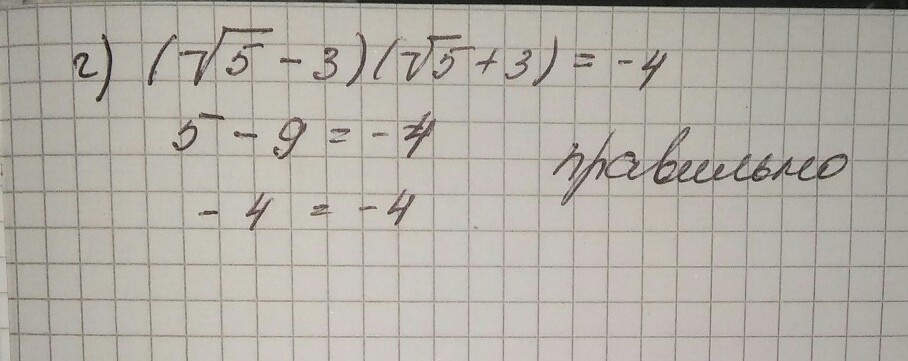 г) (√5 - 3)(√5 + 3) = -4
5 - 9 = -4
правильно
- 4 = -4